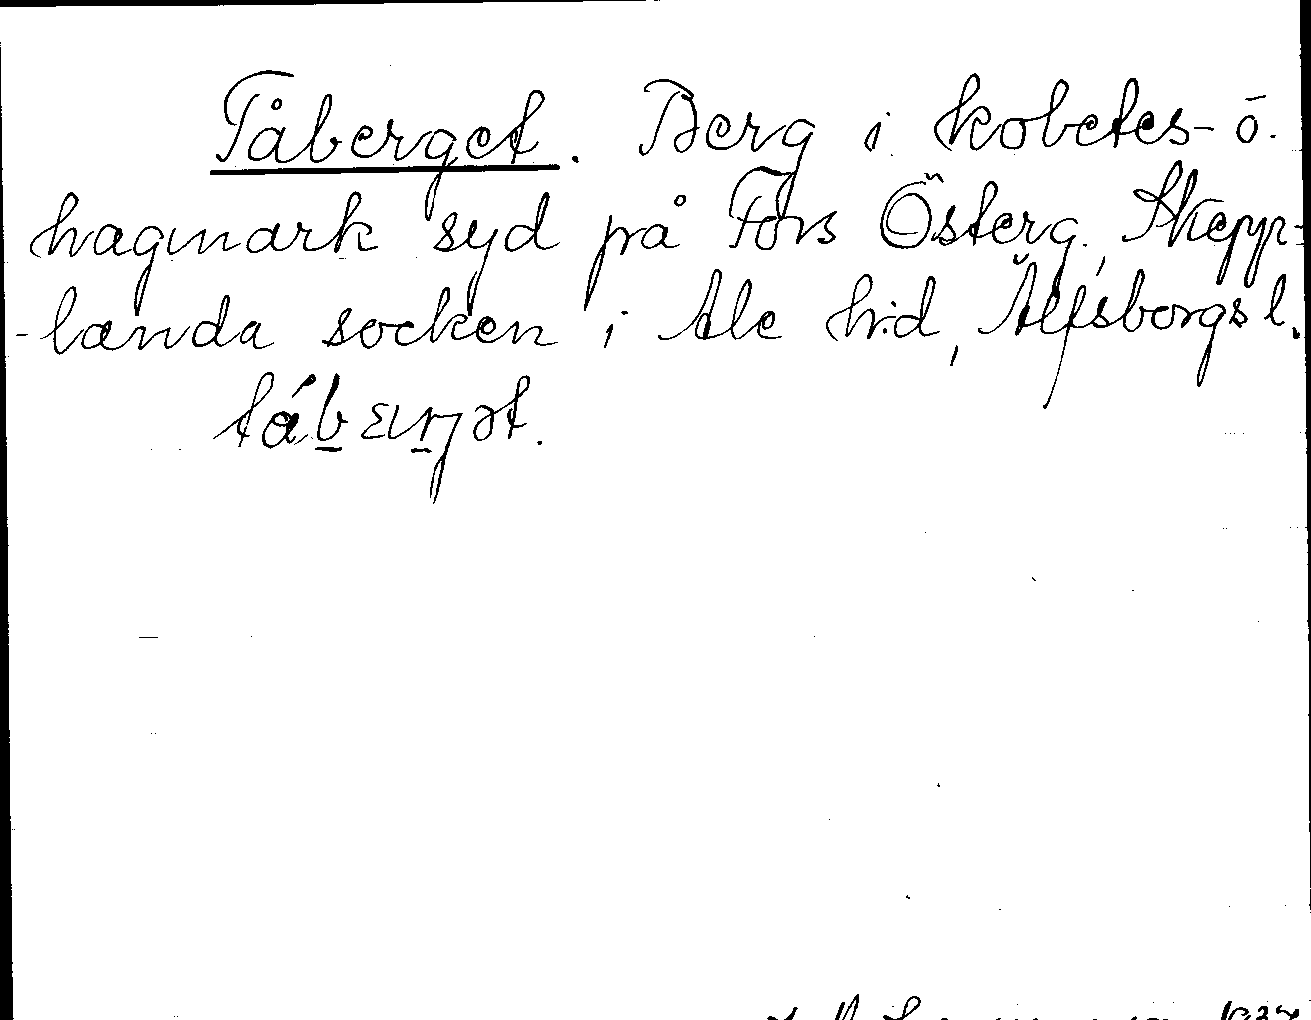 Tåberget. Berg i kobetes- ō.
hagmark syd på Fors Österg., Skepp-
-landa socken i Ale h:d, Älfsborgs l.